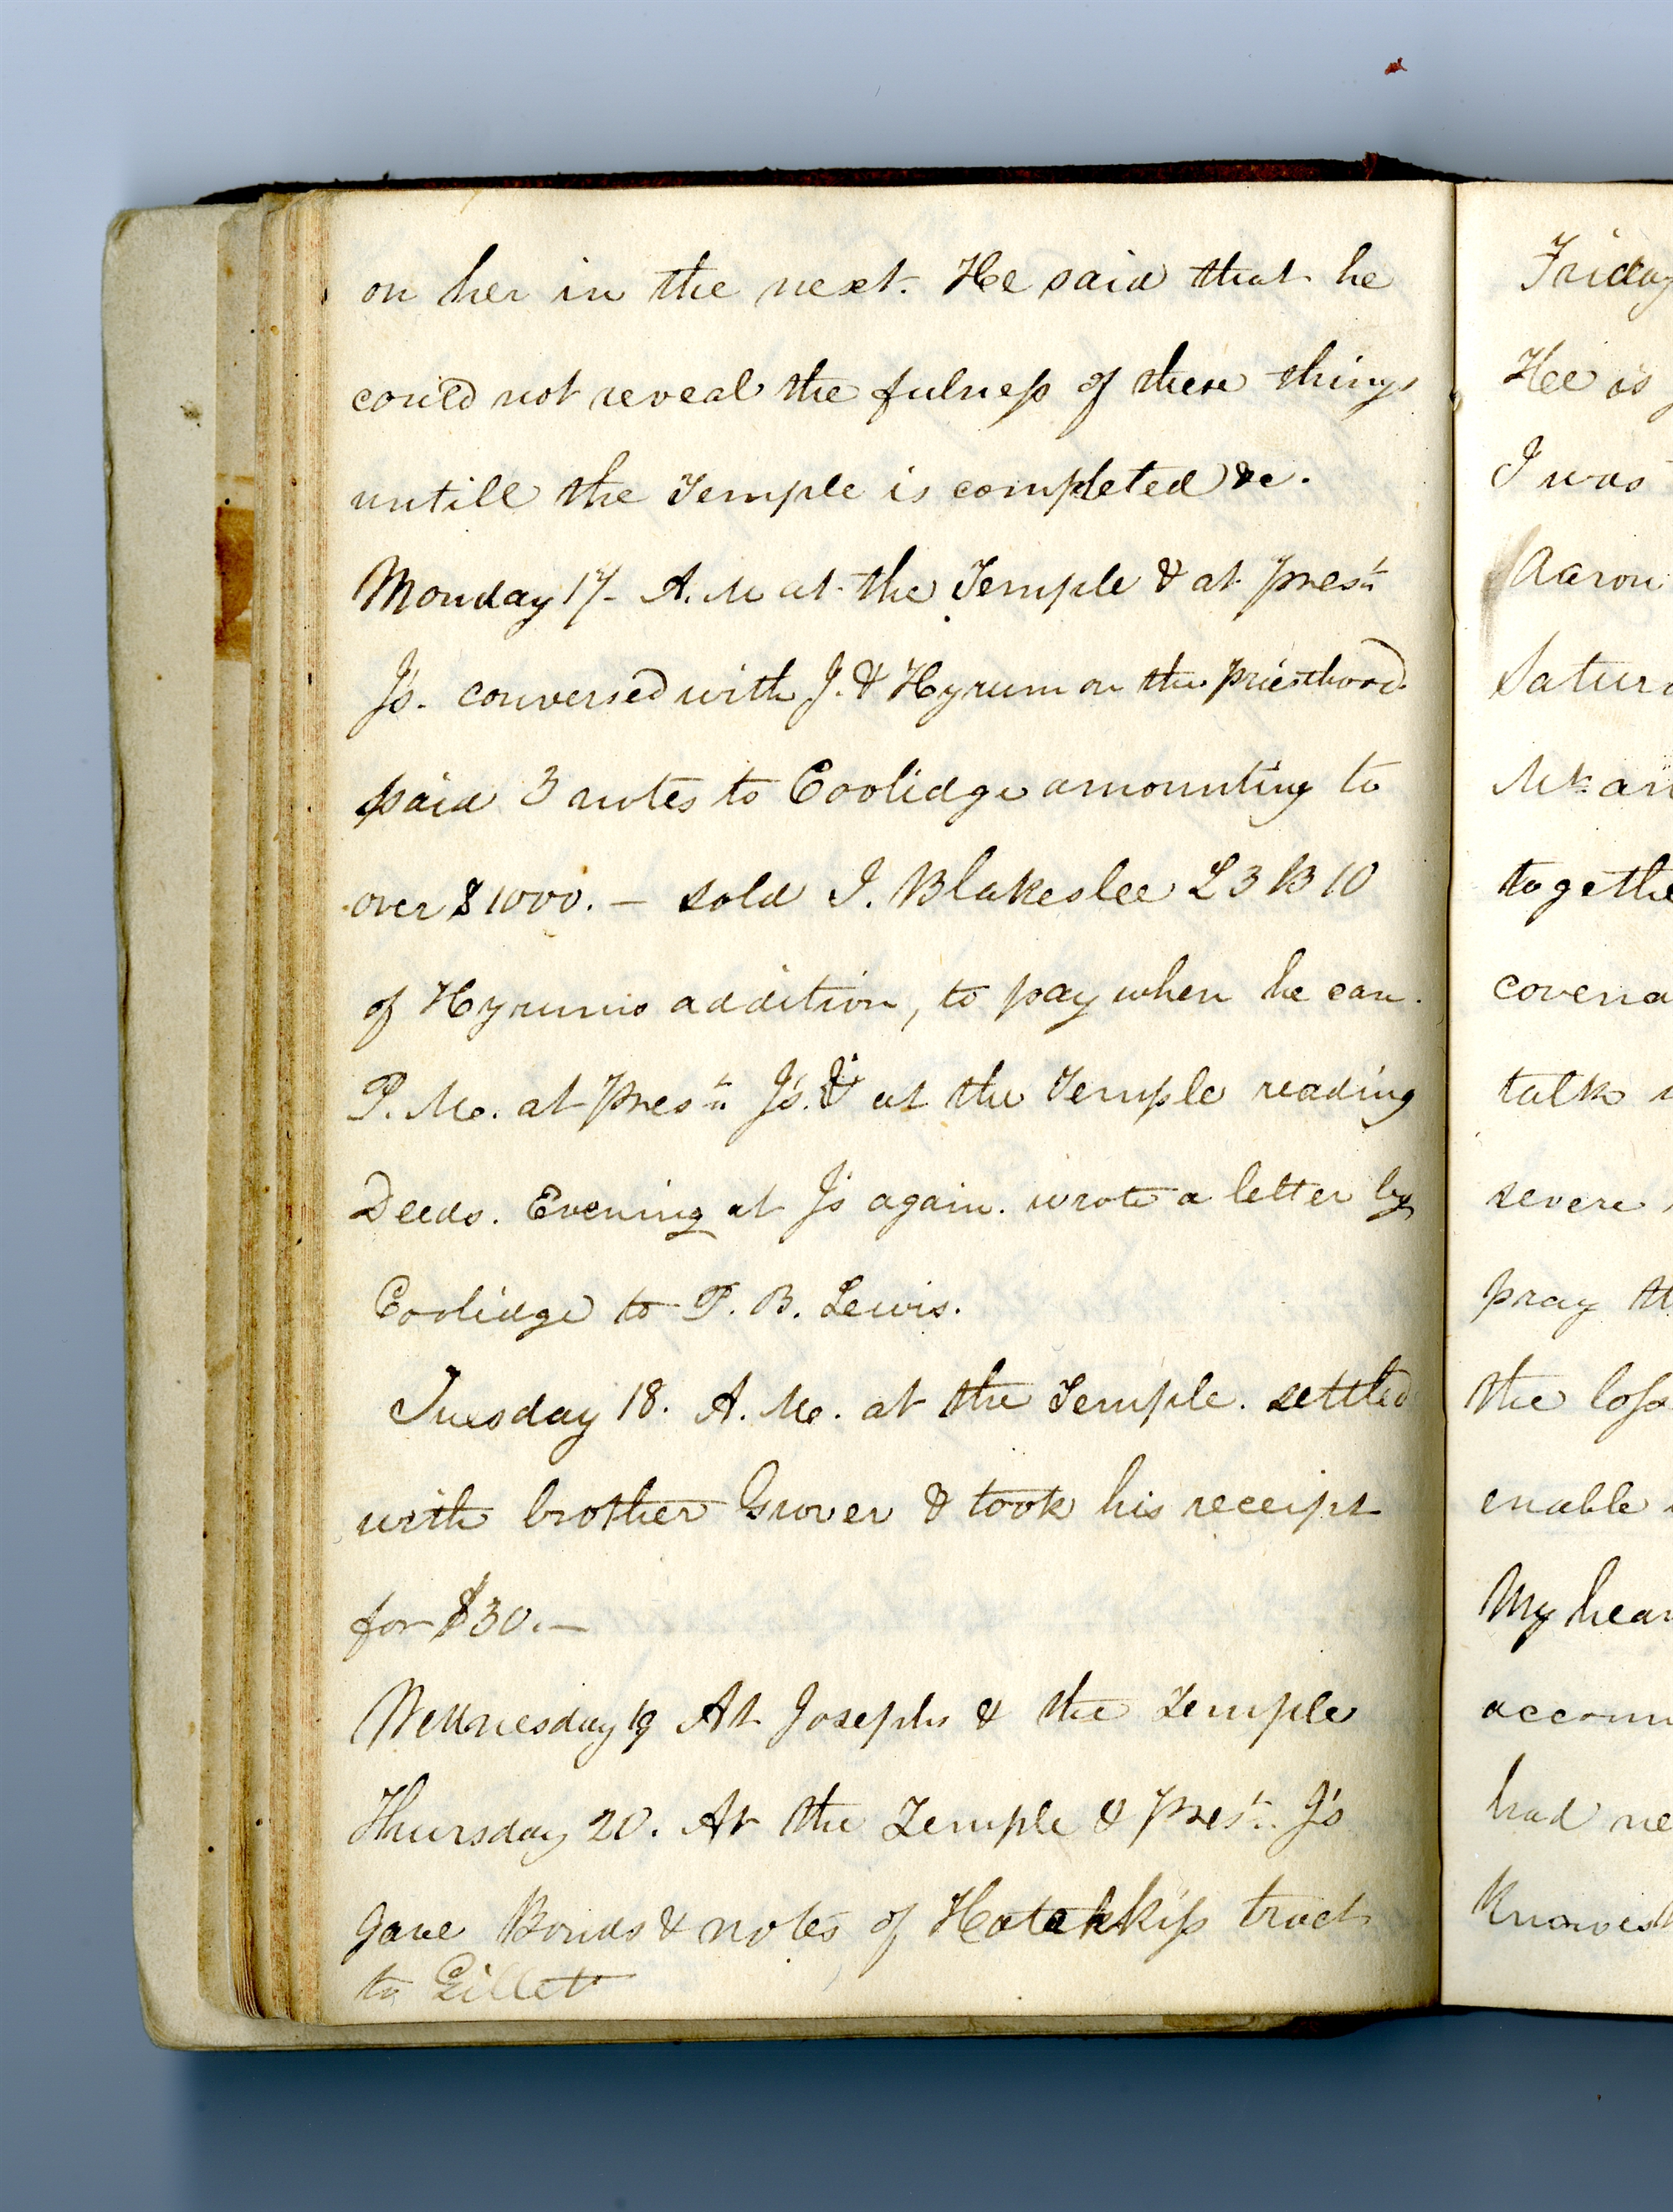 on her in the next. He said that he
could not reveal the fulness of these things
untill the Temple is completed &c.
Monday 17. A.M at the Temple & at Prest.
J's. conversed with J. & Hyrum on the priesthood.
paid 3 notes to Coolidge amounting to
over $1000. — sold J. Blakeslee L 3 B 10
of Hyrums addition, to pay when he can.
P. M. at Prest. J's. & at the Temple reading
Deeds. Evening at J's again. wrote a letter by
Coolidge to P. B. Lewis.
Tuesday 18. A. M. at the Temple. settled
with brother Grover & took his receipt
for $30.—
Wednesday 19 At Josephs & the Temple
Thursday 20. At the Temple & Prest. J's
gave Bonds & notes of Hotchkiss tract
to Gillet
Friday
He is
I was
Aaron
Satur
Mt. an
togethe
covena
talk
severe
pray th
the loss
enable
My hear
accom
had ne
Knowest